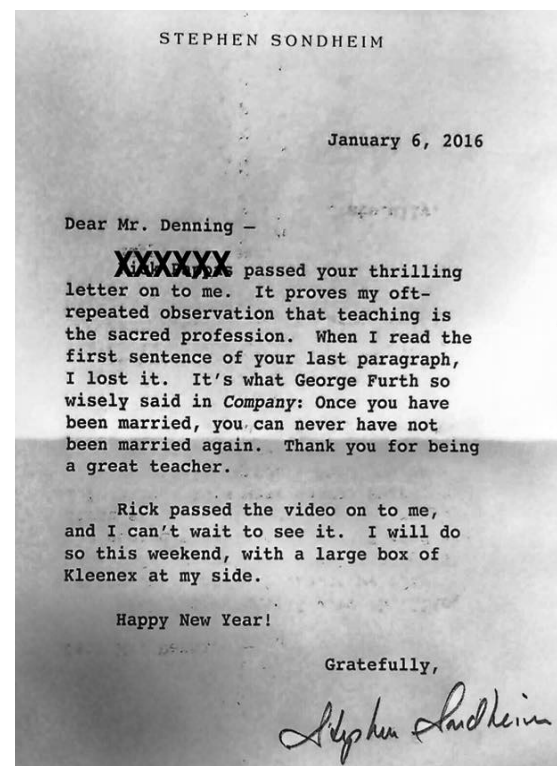 STEPHEN SONDHEIM
January 6, 2016
Dear Mr. Denning —
XXXXXX passed your thrilling
letter on to me. It proves my oft-
repeated observation that teaching is
the sacred profession. When I read the
first sentence of your last paragraph,
I lost it. It's what George Furth so
wisely said in Company: Once you have
been married, you can never have not
been married again. Thank you for being
a great teacher.
Rick passed the video on to me,
and I can't wait to see it. I will do
so this weekend, with a large box of
Kleenex at my side.
Happy New Year!
Gratefully,
Stephen Sondheim